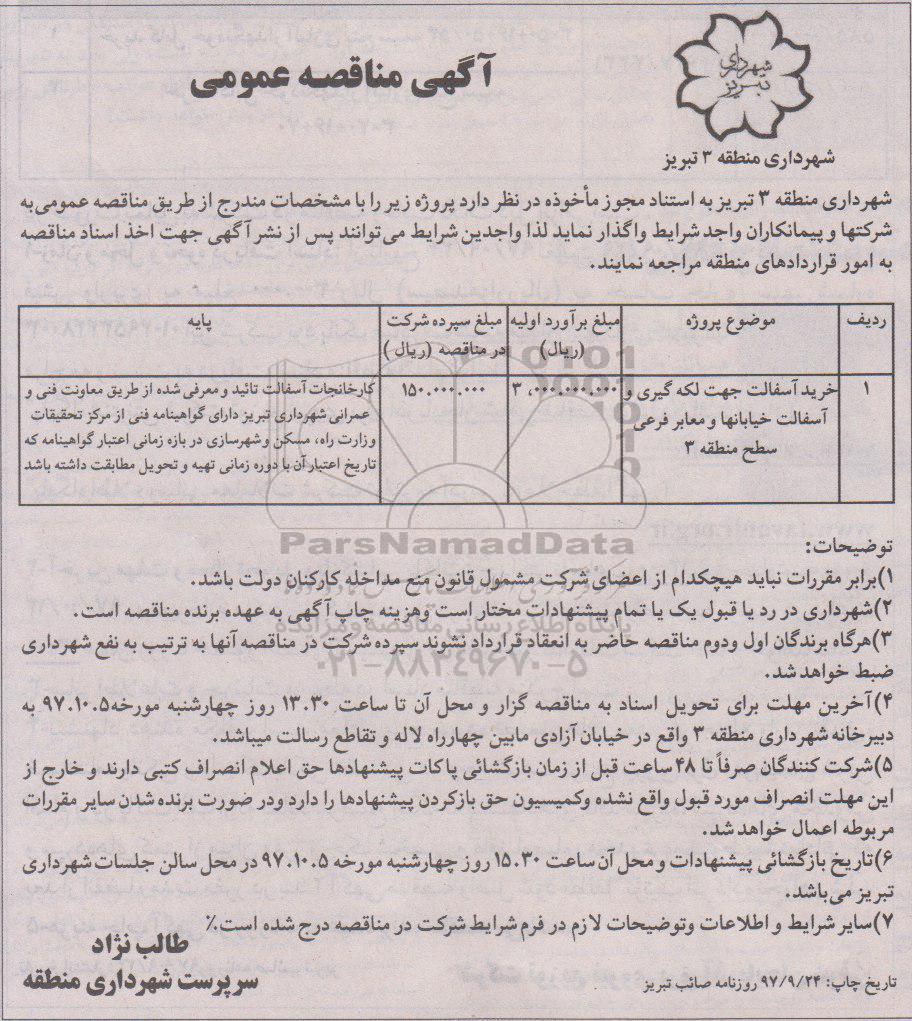 آگهی مناقصه عمومی
شهرداری
تبریز
شهرداری منطقه ۳ تبریز
شهرداری منطقه ۳ تبریز به استناد مجوز مأخوذه در نظر دارد پروژه زیر را با مشخصات مندرج از طریق مناقصه عمومی به
شرکتها و پیمانکاران واجد شرایط واگذار نماید لذا واجدین شرایط می‌توانند پس از نشر آگهی جهت اخذ اسناد مناقصه
به امور قراردادهای منطقه مراجعه نمایند.
ردیف
موضوع پروژه
مبلغ برآورد اولیه
(ریال)
مبلغ سپرده شرکت
در مناقصه (ریال )
پایه
۱
خرید آسفالت جهت لکه گیری و
آسفالت خیابانها و معابر فرعی
سطح منطقه ۳
۳،۰۰۰.۰۰۰.۰۰۰
۱۵۰.۰۰۰.۰۰۰
کارخانجات آسفالت تائید و معرفی شده از طریق معاونت فنی و
عمرانی شهرداری تبریز دارای گواهینامه فنی از مرکز تحقیقات
وزارت راه، مسکن و شهرسازی در بازه زمانی اعتبار گواهینامه که
تاریخ اعتبار آن با دوره زمانی تهیه و تحویل مطابقت داشته باشد
ParsNamadData
توضیحات:
۱)برابر مقررات نباید هیچکدام از اعضای شرکت مشمول قانون منع مداخله کارکنان دولت باشد.
۲)شهرداری در رد یا قبول یک یا تمام پیشنهادات مختار است وهزینه چاپ آگهی به عهده برنده مناقصه است.
پایگاه اطلاع رسانی مناقصه و مزایده
۳)هرگاه برندگان اول ودوم مناقصه حاضر به انعقاد قرارداد نشوند سپرده شرکت در مناقصه آنها به ترتیب به نفع شهرداری
ضبط خواهد شد.
۰۲۱-۸۸۳۴۹۶۷۰-۵
۴)آخرین مهلت برای تحویل اسناد به مناقصه گزار و محل آن تا ساعت ۱۳.۳۰ روز چهارشنبه مورخه ۹۷.۱۰.۵ به
دبیرخانه شهرداری منطقه ۳ واقع در خیابان آزادی مابین چهارراه لاله و تقاطع رسالت میباشد.
۵)شرکت کنندگان صرفاً تا ۴۸ ساعت قبل از زمان بازگشائی پاکات پیشنهادها حق اعلام انصراف کتبی دارند و خارج از
این مهلت انصراف مورد قبول واقع نشده وکمیسیون حق بازکردن پیشنهادها را دارد ودر صورت برنده شدن سایر مقررات
مربوطه اعمال خواهد شد.
۶)تاریخ بازگشائی پیشنهادات و محل آن ساعت ۱۵.۳۰ روز چهارشنبه مورخه ۹۷.۱۰.۵ در محل سالن جلسات شهرداری
تبریز می‌باشد.
۷)سایر شرایط و اطلاعات وتوضیحات لازم در فرم شرایط شرکت در مناقصه درج شده است٪
طالب نژاد
سرپرست شهرداری منطقه
تاریخ چاپ: ۹۷/۹/۲۴ روزنامه صائب تبریز